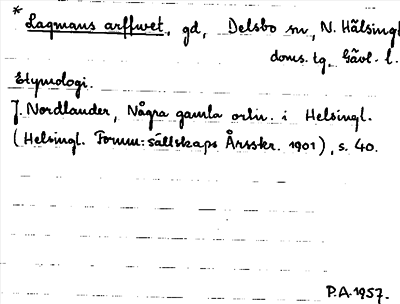 * Lagmans arffwet, gd, Delsbo sn, N. Hälsingl.
doms. tg. Gävl. l.
Etymologi.
J. Nordlander, Några gamla ortn. i Helsingl.
(Helsingl. Fornm:sällskaps Årsskr. 1901), s. 40.
P.A. 1957.